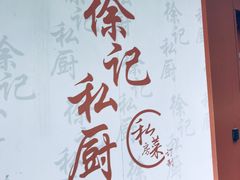 徐记
私厨
私房菜
订制
徐记私厨
徐记私厨
徐记私厨